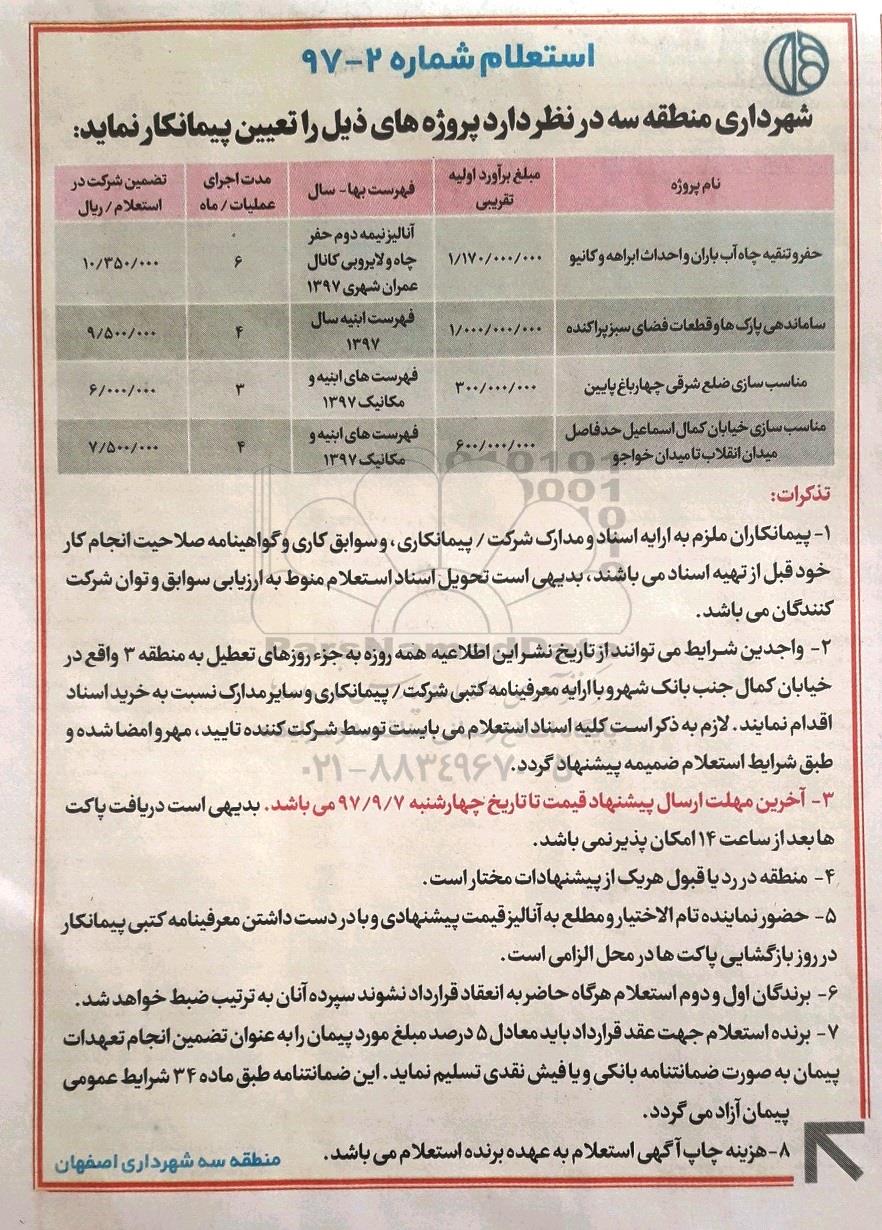 استعلام شماره ۲-۹۷
شهرداری منطقه سه در نظر دارد پروژه های ذیل را تعیین پیمانکار نماید:
نام پروژه	مبلغ برآورد اولیه تقریبی	فهرست بها - سال	مدت اجرای عملیات / ماه	تضمین شرکت در استعلام / ریال
حفر و تنقیه چاه آب باران و احداث ابراهه و کانیو	۱/۱۷۰/۰۰۰/۰۰۰	آنالیز نیمه دوم حفر چاه و لایروبی کانال عمران شهری ۱۳۹۷	۶	۱۰/۳۵۰/۰۰۰
ساماندهی پارک ها و قطعات فضای سبز پراکنده	۱/۰۰۰/۰۰۰/۰۰۰	فهرست ابنیه سال ۱۳۹۷	۴	۹/۵۰۰/۰۰۰
مناسب سازی ضلع شرقی چهارباغ پایین	۳۰۰/۰۰۰/۰۰۰	فهرست های ابنیه و مکانیک ۱۳۹۷	۳	۶/۰۰۰/۰۰۰
مناسب سازی خیابان کمال اسماعیل حدفاصل میدان انقلاب تا میدان خواجو	۶۰۰/۰۰۰/۰۰۰	فهرست های ابنیه و مکانیک ۱۳۹۷	۴	۷/۵۰۰/۰۰۰
تذکرات:
۱- پیمانکاران ملزم به ارایه اسناد و مدارک شرکت / پیمانکاری، و سوابق کاری و گواهینامه صلاحیت انجام کار
خود قبل از تهیه اسناد می باشند، بدیهی است تحویل اسناد استعلام منوط به ارزیابی سوابق و توان شرکت
کنندگان می باشد.
۲- واجدین شرایط می توانند از تاریخ نشر این اطلاعیه همه روزه به جزء روزهای تعطیل به منطقه ۳ واقع در
خیابان کمال جنب بانک شهر و با ارایه معرفینامه کتبی شرکت / پیمانکاری و سایر مدارک نسبت به خرید اسناد
اقدام نمایند. لازم به ذکر است کلیه اسناد استعلام می بایست توسط شرکت کننده تایید، مهر و امضا شده و
طبق شرایط استعلام ضمیمه پیشنهاد گردد.
۰۲۱-۸۸۳۴۹۶۷۰-۵
۳- آخرین مهلت ارسال پیشنهاد قیمت تا تاریخ چهارشنبه ۹۷/۹/۷ می باشد. بدیهی است دریافت پاکت
ها بعد از ساعت ۱۴ امکان پذیر نمی باشد.
۴- منطقه در رد یا قبول هریک از پیشنهادات مختار است.
۵- حضور نماینده تام الاختیار و مطلع به آنالیز قیمت پیشنهادی و با در دست داشتن معرفینامه کتبی پیمانکار
در روز بازگشایی پاکت ها در محل الزامی است.
۶- برندگان اول و دوم استعلام هرگاه حاضر به انعقاد قرارداد نشوند سپرده آنان به ترتیب ضبط خواهد شد.
۷- برنده استعلام جهت عقد قرارداد باید معادل ۵ درصد مبلغ مورد پیمان را به عنوان تضمین انجام تعهدات
پیمان به صورت ضمانتنامه بانکی و یا فیش نقدی تسلیم نماید. این ضمانتنامه طبق ماده ۳۴ شرایط عمومی
پیمان آزاد می گردد.
۸- هزینه چاپ آگهی استعلام به عهده برنده استعلام می باشد.
منطقه سه شهرداری اصفهان